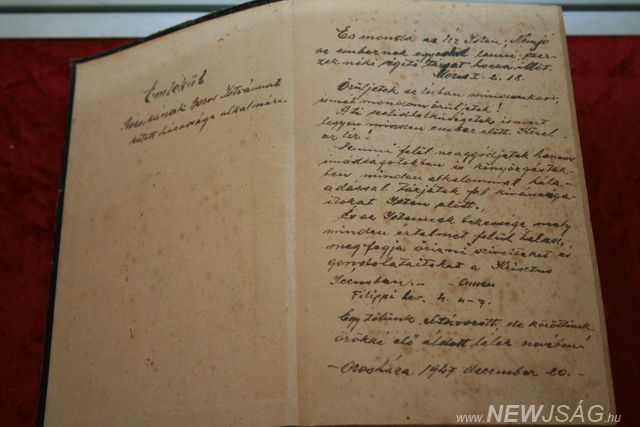 Emlékül
Boros Istvánnal
kötött házassága alkalmára.
És monda az Úr Isten: Nem jó
az embernek egyedül lenni; szer-
zek néki segítő társat hozzá illőt.
Mózes I. 2. 18.
Örüljetek az Úrban mindenkor;
ismét mondom örüljetek!
A ti szelídlelkűségetek ismert
legyen minden ember előtt. Közel
az Úr!
Semmi felől ne aggódjatok hanem
imádságotokban és könyörgéstek-
ben minden alkalommal hála-
adással tárjátok fel kívánsága-
itokat Isten előtt.
És az Istennek békessége, mely
minden értelmet felül halad,
meg fogja őrizni szíveiteket és
gondolataitokat a Krisztus
Jézusban. - Amen
Filippi lev. 4. 4-7.
Egy tőlünk eltávozott, de közöttünk
örökké élő áldott lélek nevében!
- Orosháza 1947 december 20. -
www.NEWJSÁG.hu